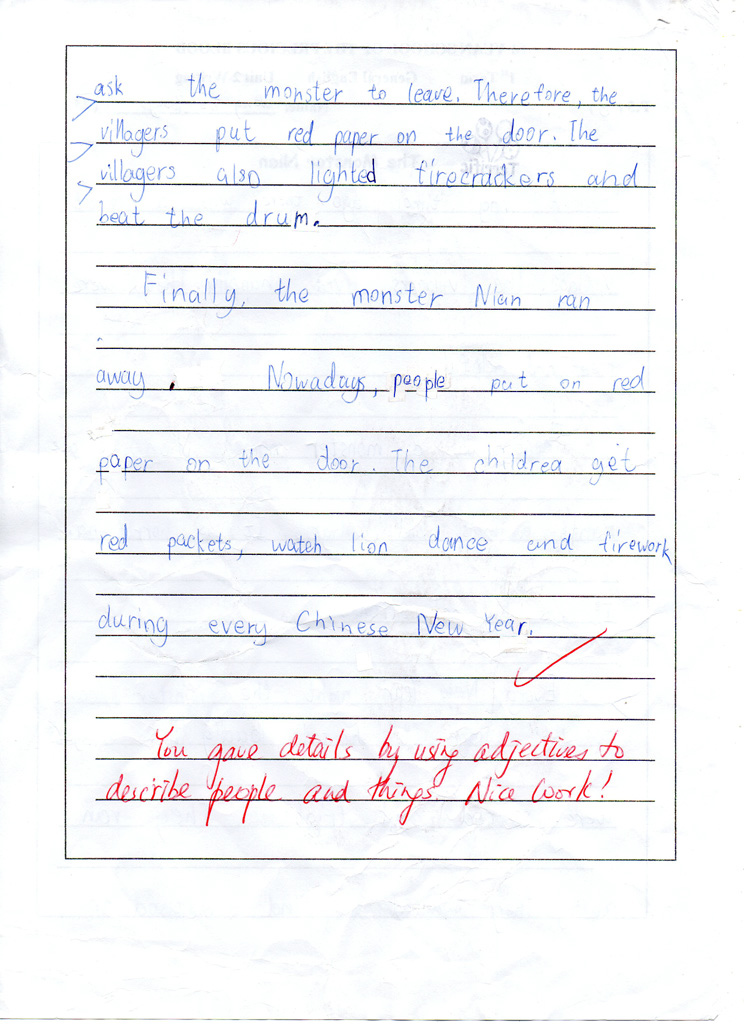 ask the monster to leave. Therefore, the
villagers put red paper on the door. The
villagers also lighted firecrackers and
beat the drum.
Finally, the monster Nian ran
away. Nowadays, people put on red
paper on the door. The children get
red packets, watch lion dance and firework
during every Chinese New Year.
You gave details by using adjectives to
describe people and things Nice work!